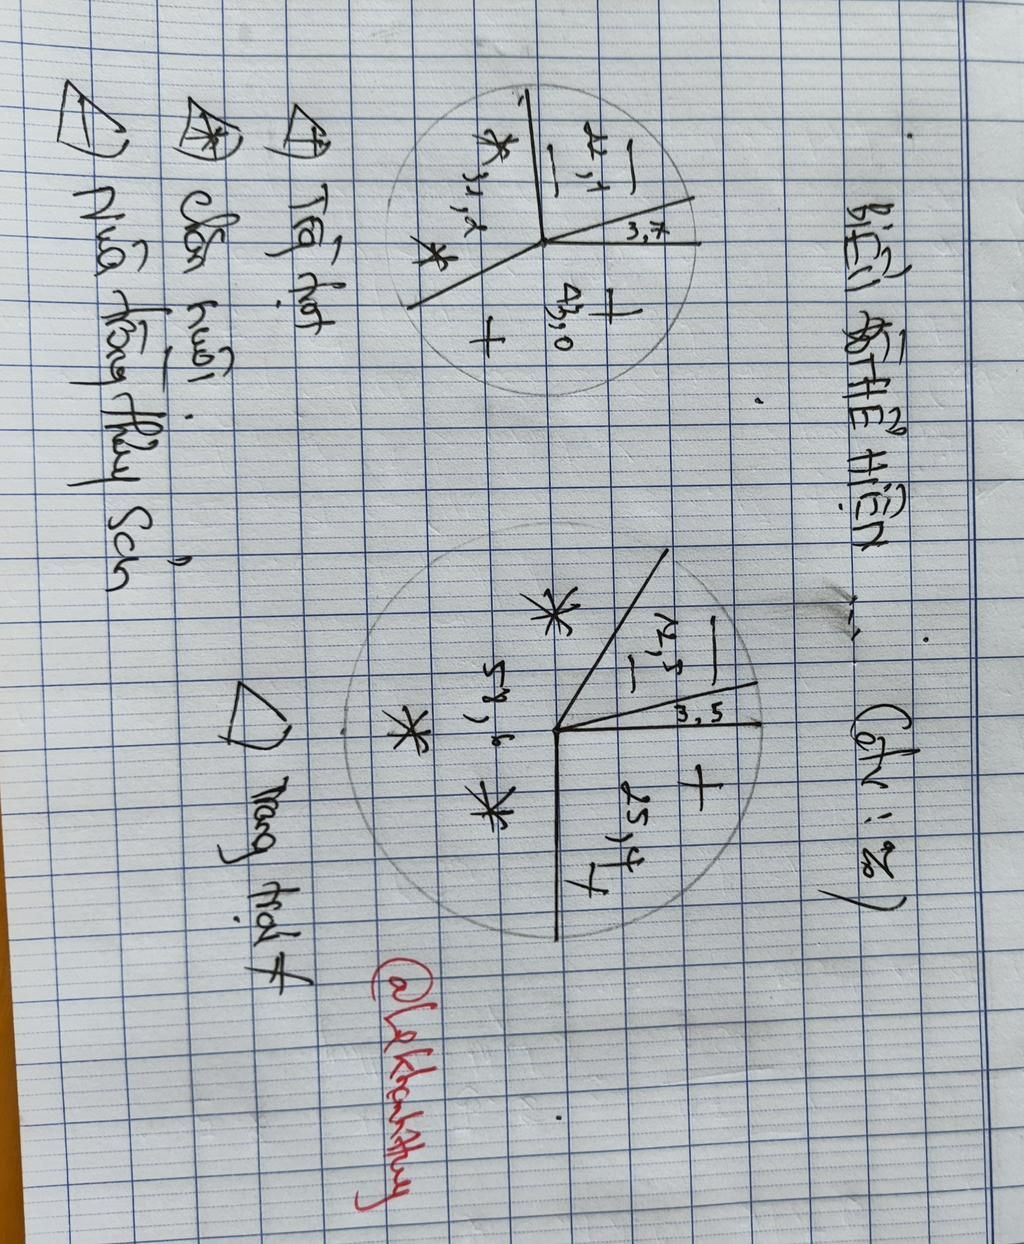 BIỂU ĐỒ THỂ HIỆN ... (đtv: %)
3,7
43,0
31,2
22,1
3,5
25,4
58,6
12,5
Trồng trọt
Trang trại #
Chăn nuôi
Nuôi trồng thủy sản
@Lekhanhthuy